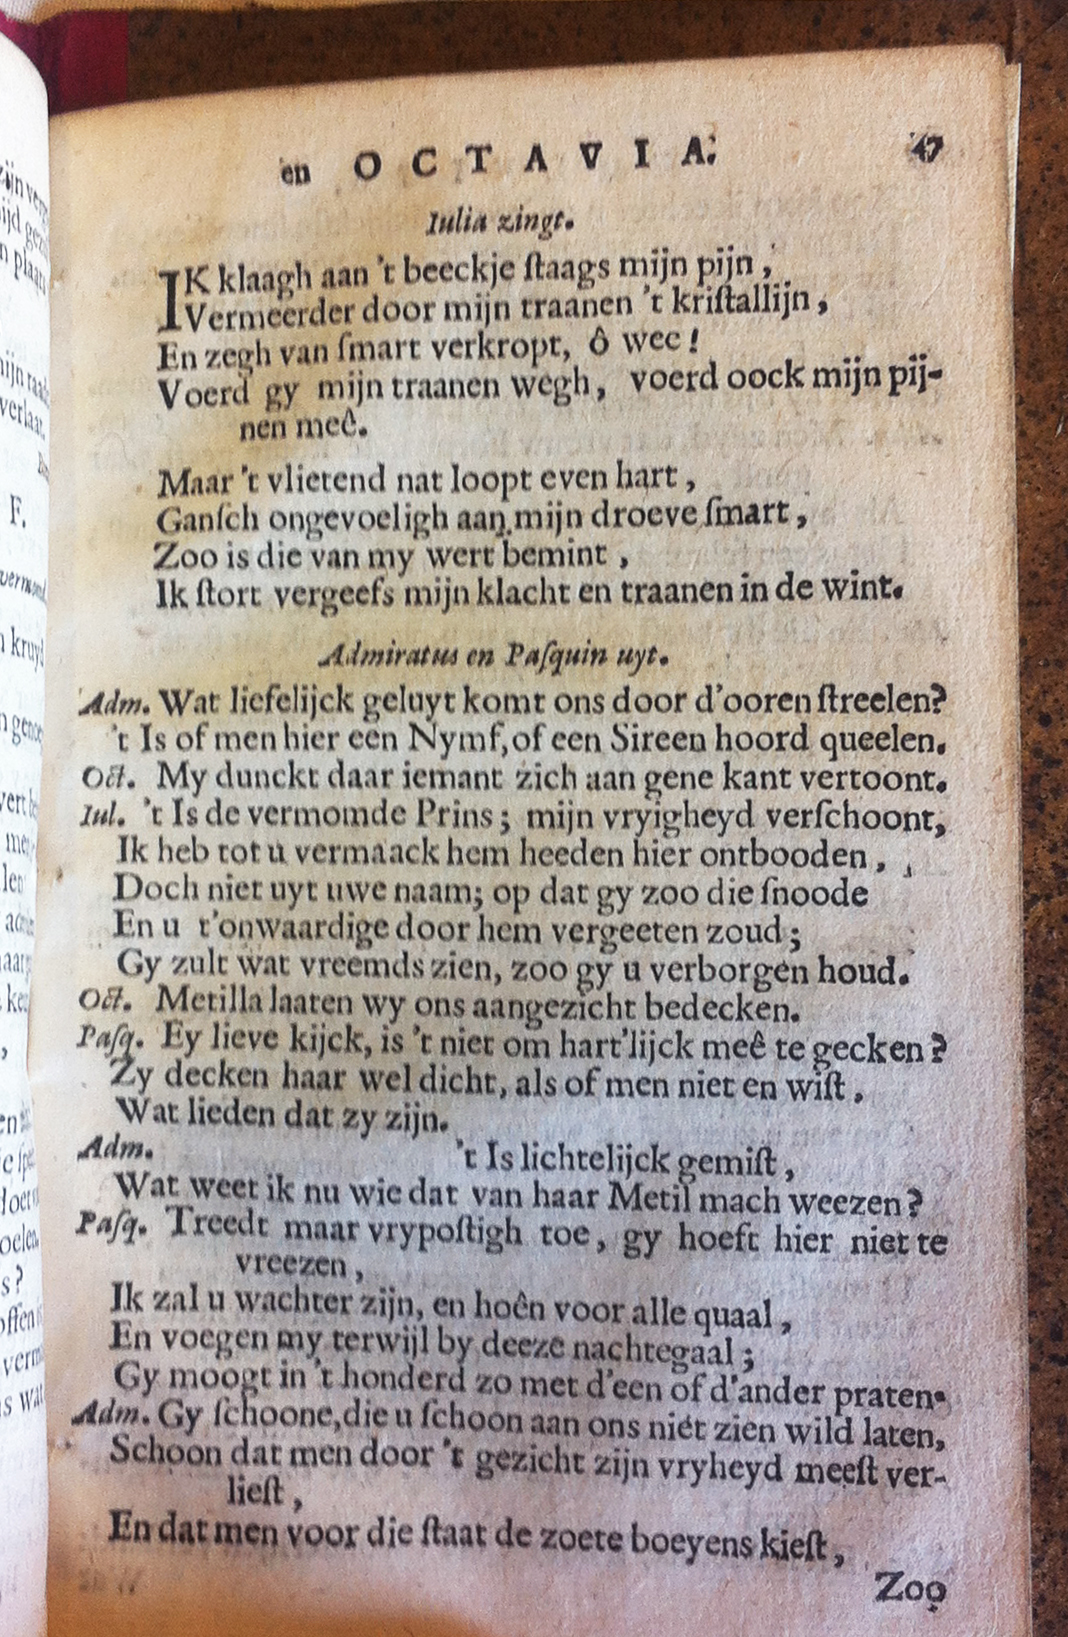 en OCTAVIA. 47
Iulia zingt.
IK klaagh aan 't beeckje ſtaags mijn pijn,
Vermeerder door mijn traanen 't kriſtallijn,
En zegh van ſmart verkropt, ô wee!
Voerd gy mijn traanen wegh, voerd oock mijn pij-
nen meê.
Maar 't vlietend nat loopt even hart,
Ganſch ongevoeligh aan mijn droeve ſmart,
Zoo is die van my wert bemint,
Ik ſtort vergeefs mijn klacht en traanen in de wint.
Admiratus en Paſquin uyt.
Adm. Wat liefelijck geluyt komt ons door d'ooren ſtreelen?
't Is of men hier een Nymf, of een Sireen hoord queelen.
Oct. My dunckt daar iemant zich aan gene kant vertoont.
Iul. 't Is de vermomde Prins; mijn vryigheyd verſchoont,
Ik heb tot u vermaack hem heeden hier ontbooden,
Doch niet uyt uwe naam; op dat gy zoo die ſnoode
En u t'onwaardige door hem vergeeten zoud;
Gy zult wat vreemds zien, zoo gy u verborgen houd.
Oct. Metilla laaten wy ons aangezicht bedecken.
Paſq. Ey lieve kijck, is 't niet om hart'lijck meê te gecken?
Zy decken haar wel dicht, als of men niet en wiſt,
Wat lieden dat zy zijn.
Adm. 't Is lichtelijck gemiſt,
Wat weet ik nu wie dat van haar Metil mach weezen?
Paſq. Treedt maar vrypoſtigh toe, gy hoeft hier niet te
vreezen,
Ik zal u wachter zijn, en hoên voor alle quaal,
En voegen my terwijl by deeze nachtegaal;
Gy moogt in 't honderd zo met d'een of d'ander praten.
Adm. Gy ſchoone, die u ſchoon aan ons niet zien wild laten,
Schoon dat men door 't gezicht zijn vryheyd meeſt ver-
lieſt,
En dat men voor die ſtaat de zoete boeyens kieſt,
Zoo